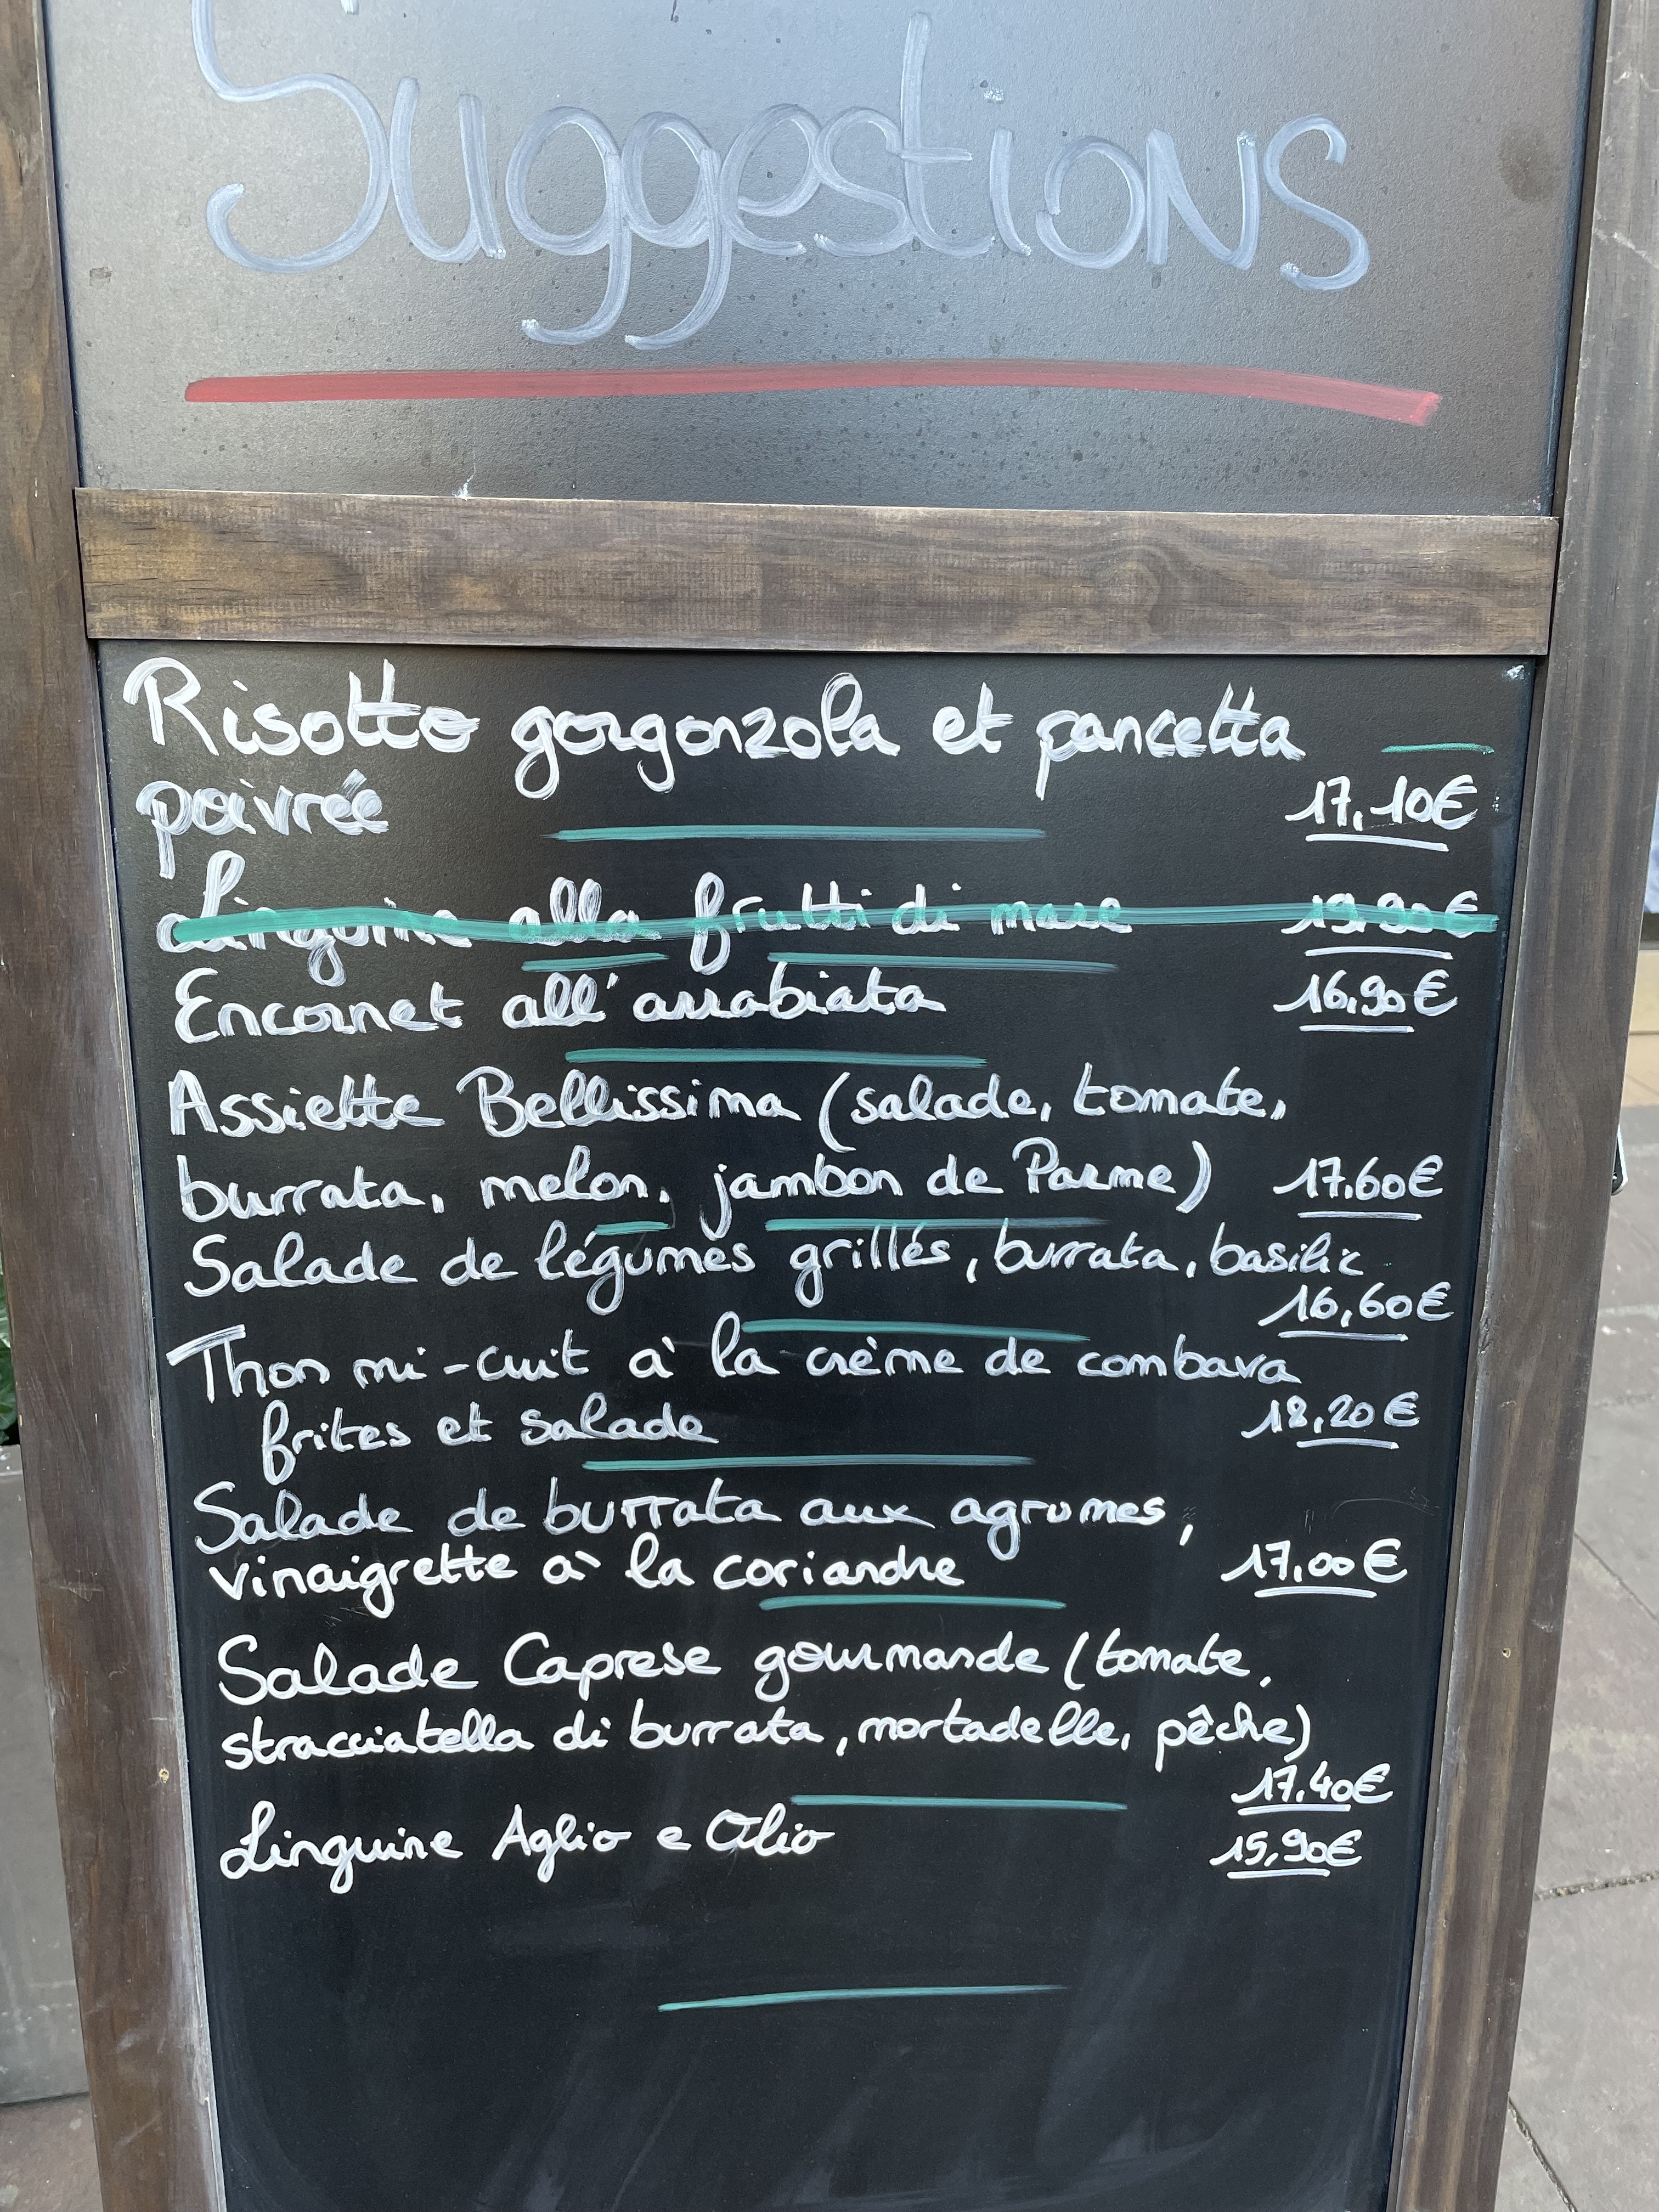 Suggestions
Risotto gorgonzola et pancetta
poivrée 17,10€
Linguine alla frutti di mare 19.90€
Encornet all'arrabiata 16,90€
Assiette Bellissima (salade, tomate,
burrata, melon, jambon de Parme) 17.60€
Salade de légumes grillés, burrata, basilic
16,60€
Thon mi-cuit à la crème de combava
frites et salade 18,20€
Salade de burrata aux agrumes,
vinaigrette à la coriandre 17,00€
Salade Caprese gourmande (tomate,
stracciatella di burrata, mortadelle, pêche)
17.40€
Linguine Aglio e Olio 15,90€